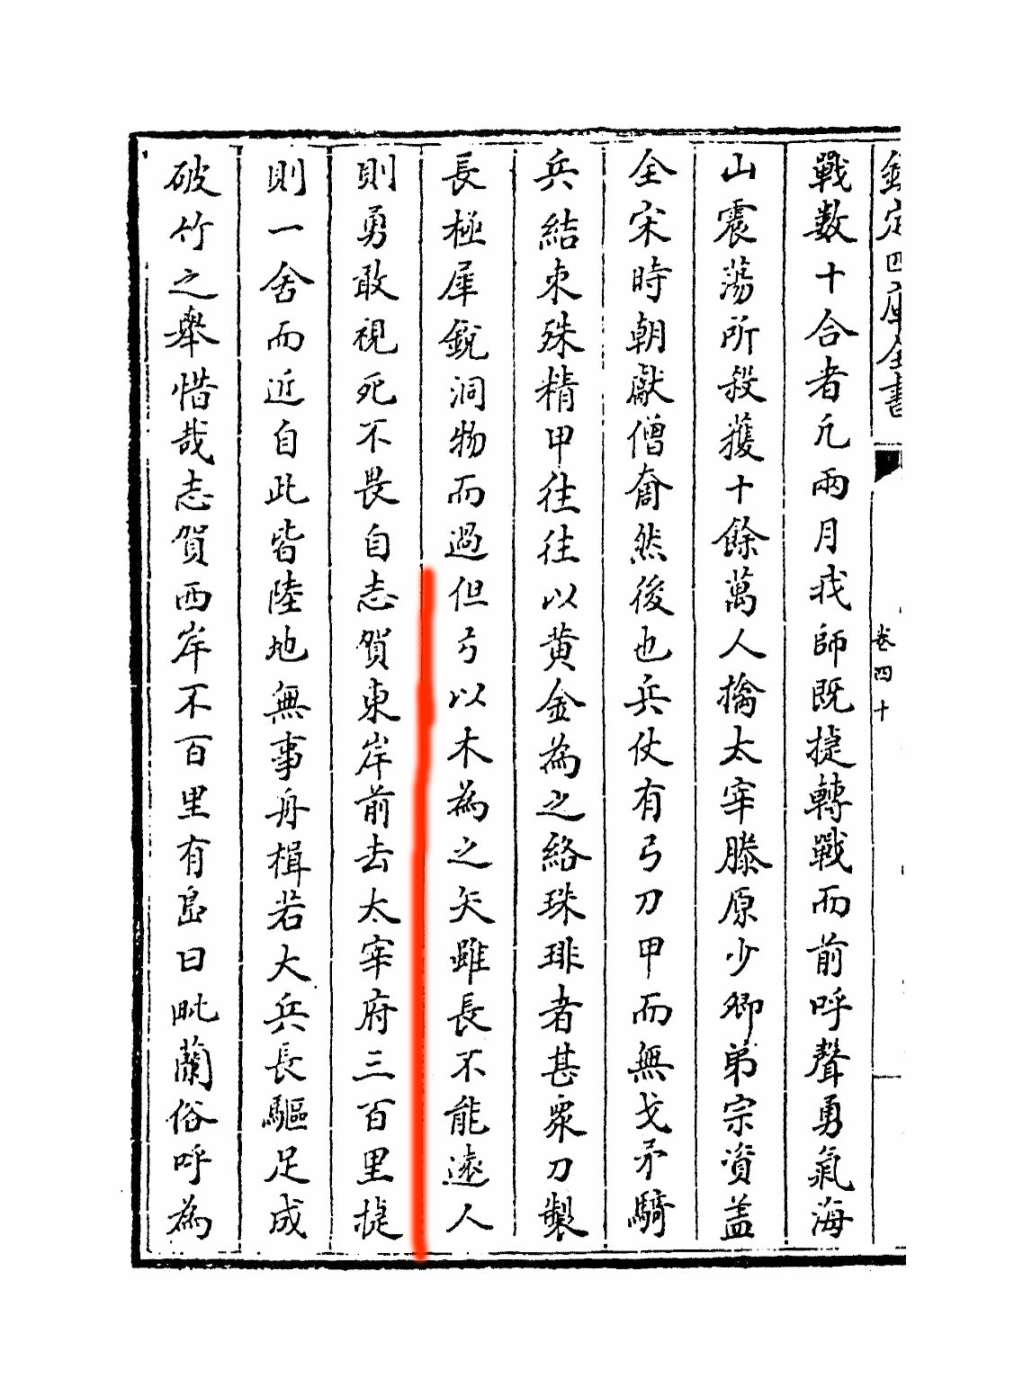 欽定四庫全書
卷四十
戰數十合者凡兩月我師既捷轉戰而前呼聲勇氣海
山震蕩所殺獲十餘萬人擒太宰滕原少卿弟宗資蓋
全宋時朝獻僧奝然後也兵仗有弓刀甲而無戈矛騎
兵結束殊精甲往往以黄金為之絡珠琲者甚衆刀製
長極犀銳洞物而過但弓以木為之矢雖長不能遠人
則勇敢視死不畏自志賀東岸前去太宰府三百里捷
則一舍而近自此皆陸地無事舟楫若大兵長驅足成
破竹之舉惜哉志賀西岸不百里有島曰毗蘭俗呼為